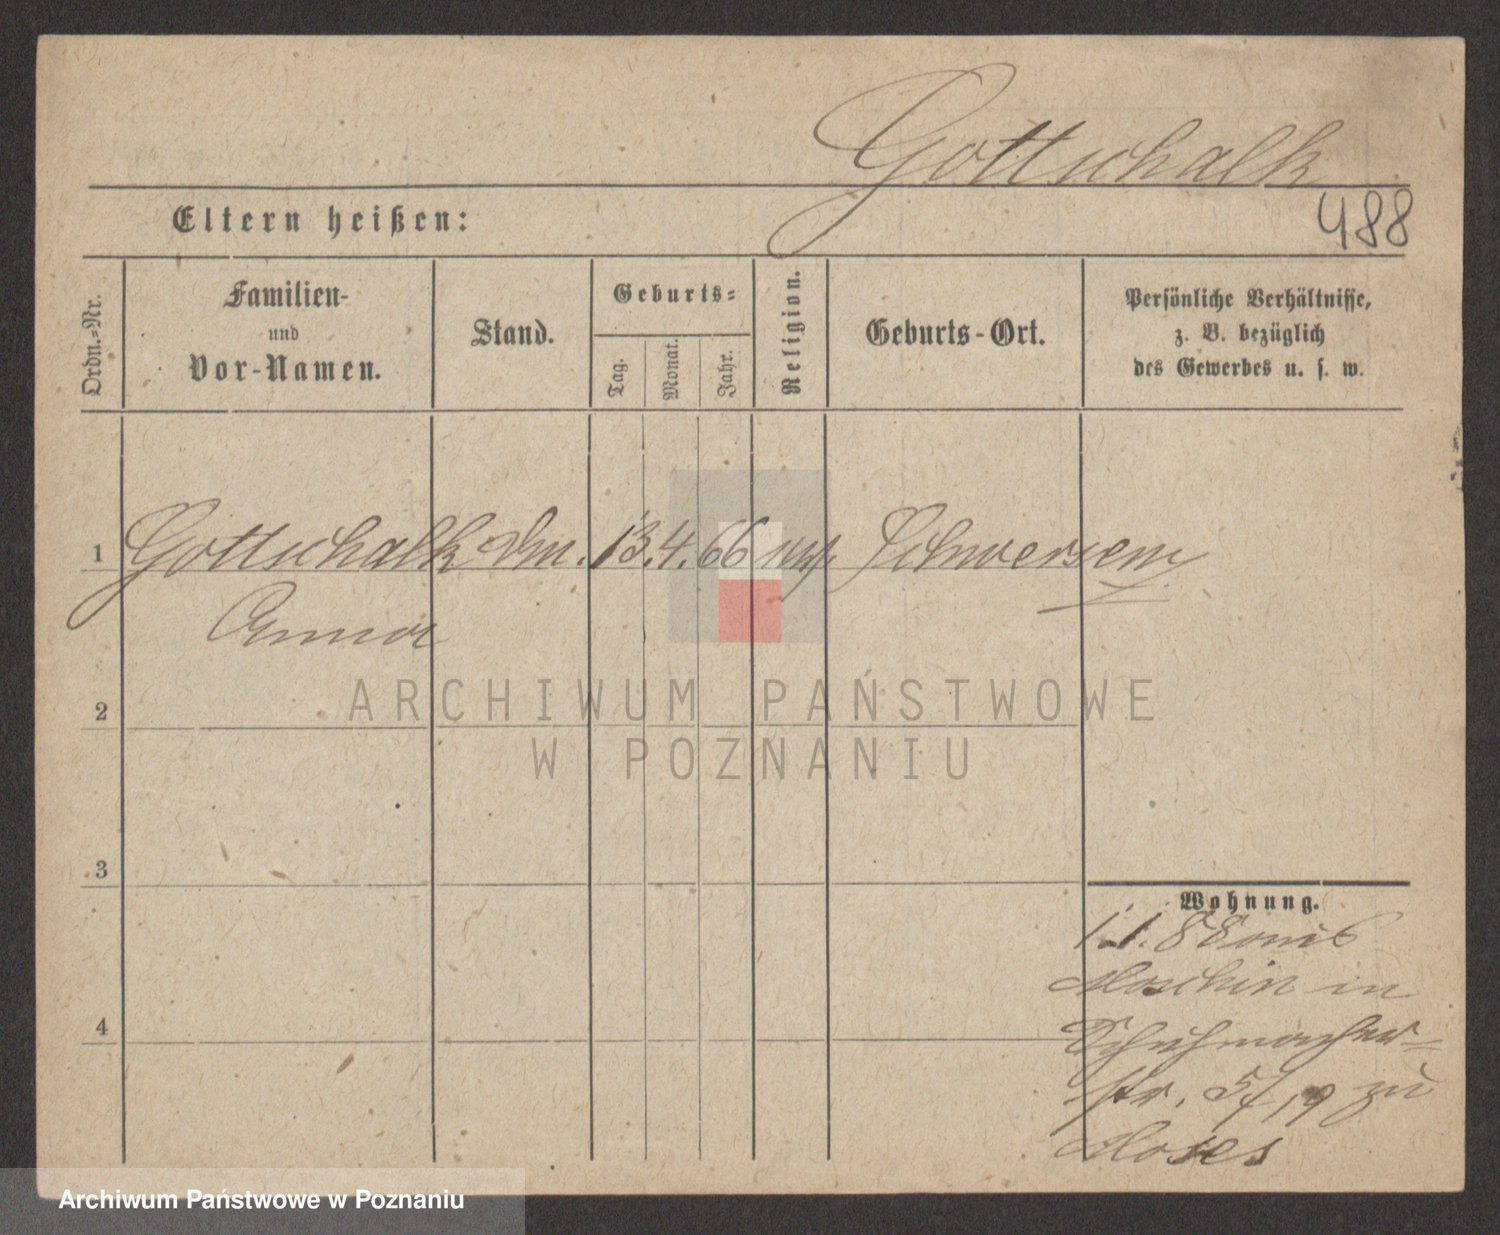 Gottschalk
488
Eltern heißen:
Ordn.-Nr.
Familien-
und
Vor-Namen.
Stand.
Geburts-
Tag.
Monat.
Jahr.
Religion.
Geburts-Ort.
Persönliche Verhältnisse,
z. B. bezüglich
des Gewerbes u. s. w.
1 Gottschalk 13. 4. 66 Schwersenz
Anna
2
3
4
Wohnung.
1. 1. 88
in
Schuhmacher-
str. 19 zu
Moses
ARCHIWUM PAŃSTWOWE
W POZNANIU
Archiwum Państwowe w Poznaniu